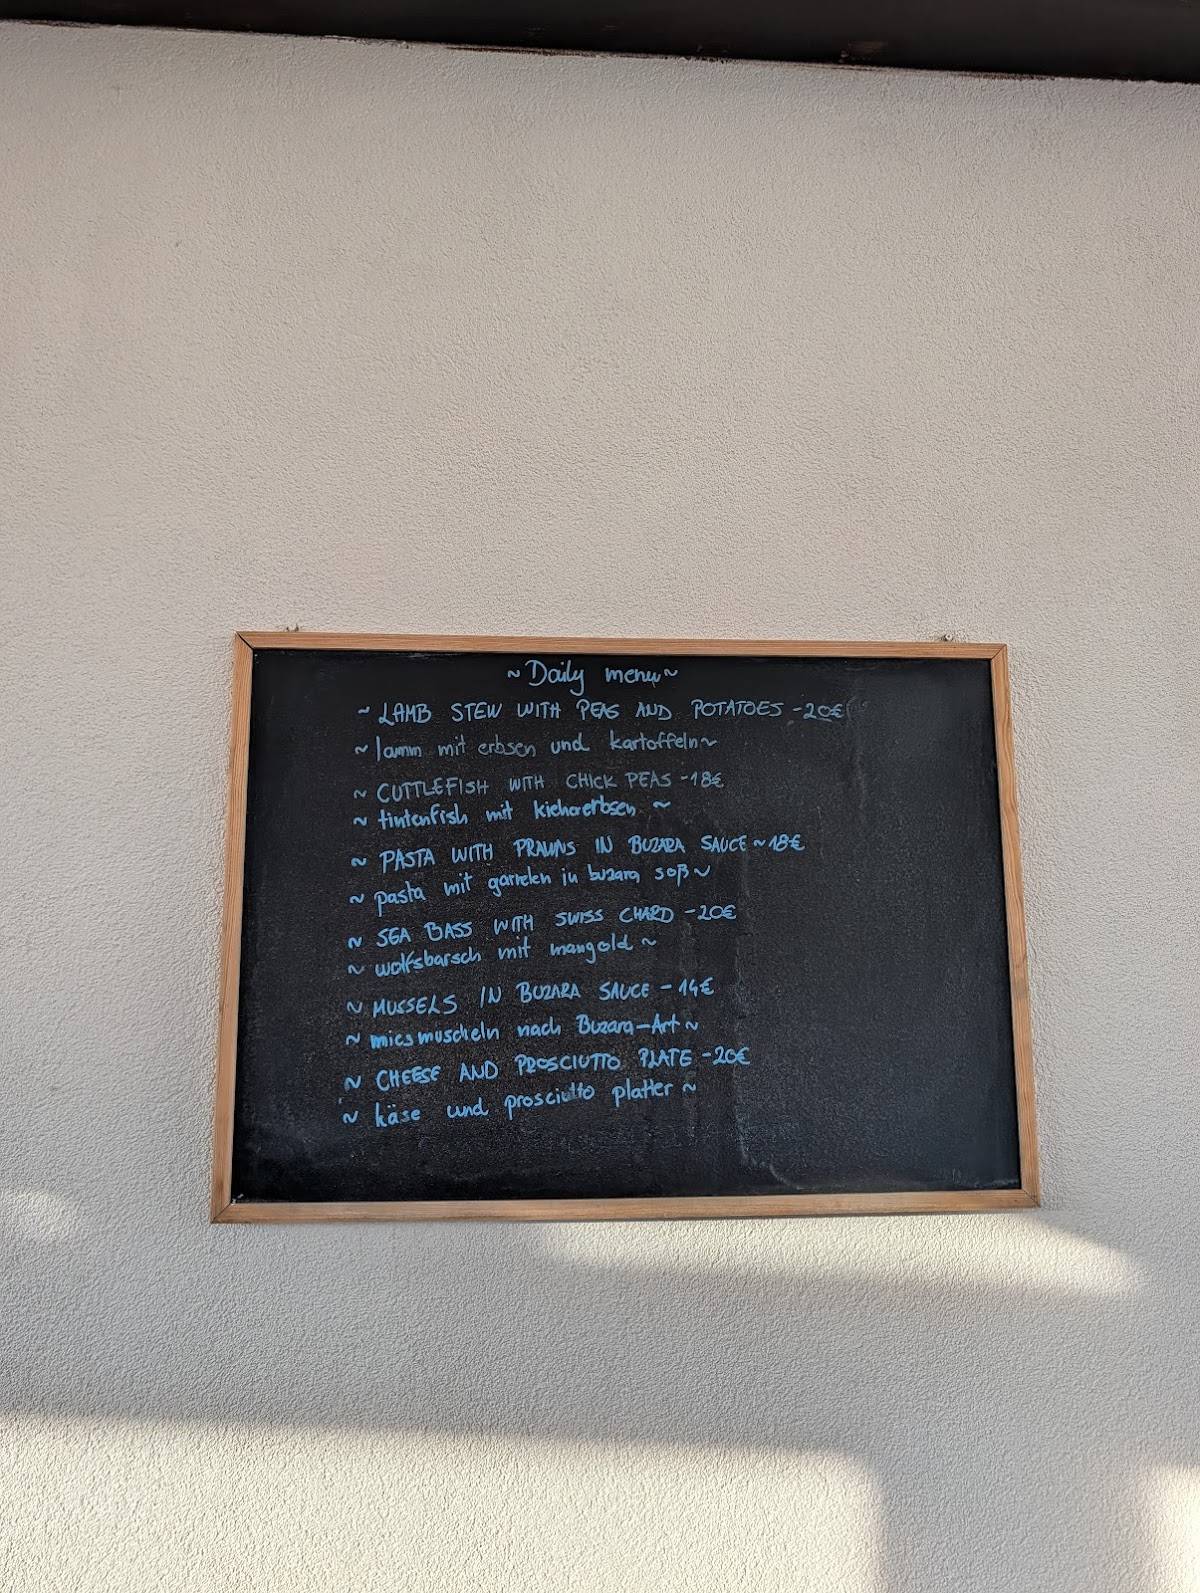 ~Daily menu~
~ LAMB STEW WITH PEAS AND POTATOES -20€
~ lamm mit erbsen und kartoffeln~
~ CUTTLEFISH WITH CHICK PEAS -18€
~ tintenfish mit kichererbsen ~
~ PASTA WITH PRAWNS IN BUZARA SAUCE ~18€
~ pasta mit garnelen in buzara soß~
~ SEA BASS WITH SWISS CHARD -20€
~ wolfsbarsch mit mangold ~
~ MUSSELS IN BUZARA SAUCE - 14€
~ miesmuscheln nach Buzara-Art~
~ CHEESE AND PROSCIUTTO PLATE -20€
~ käse und prosciutto platter ~